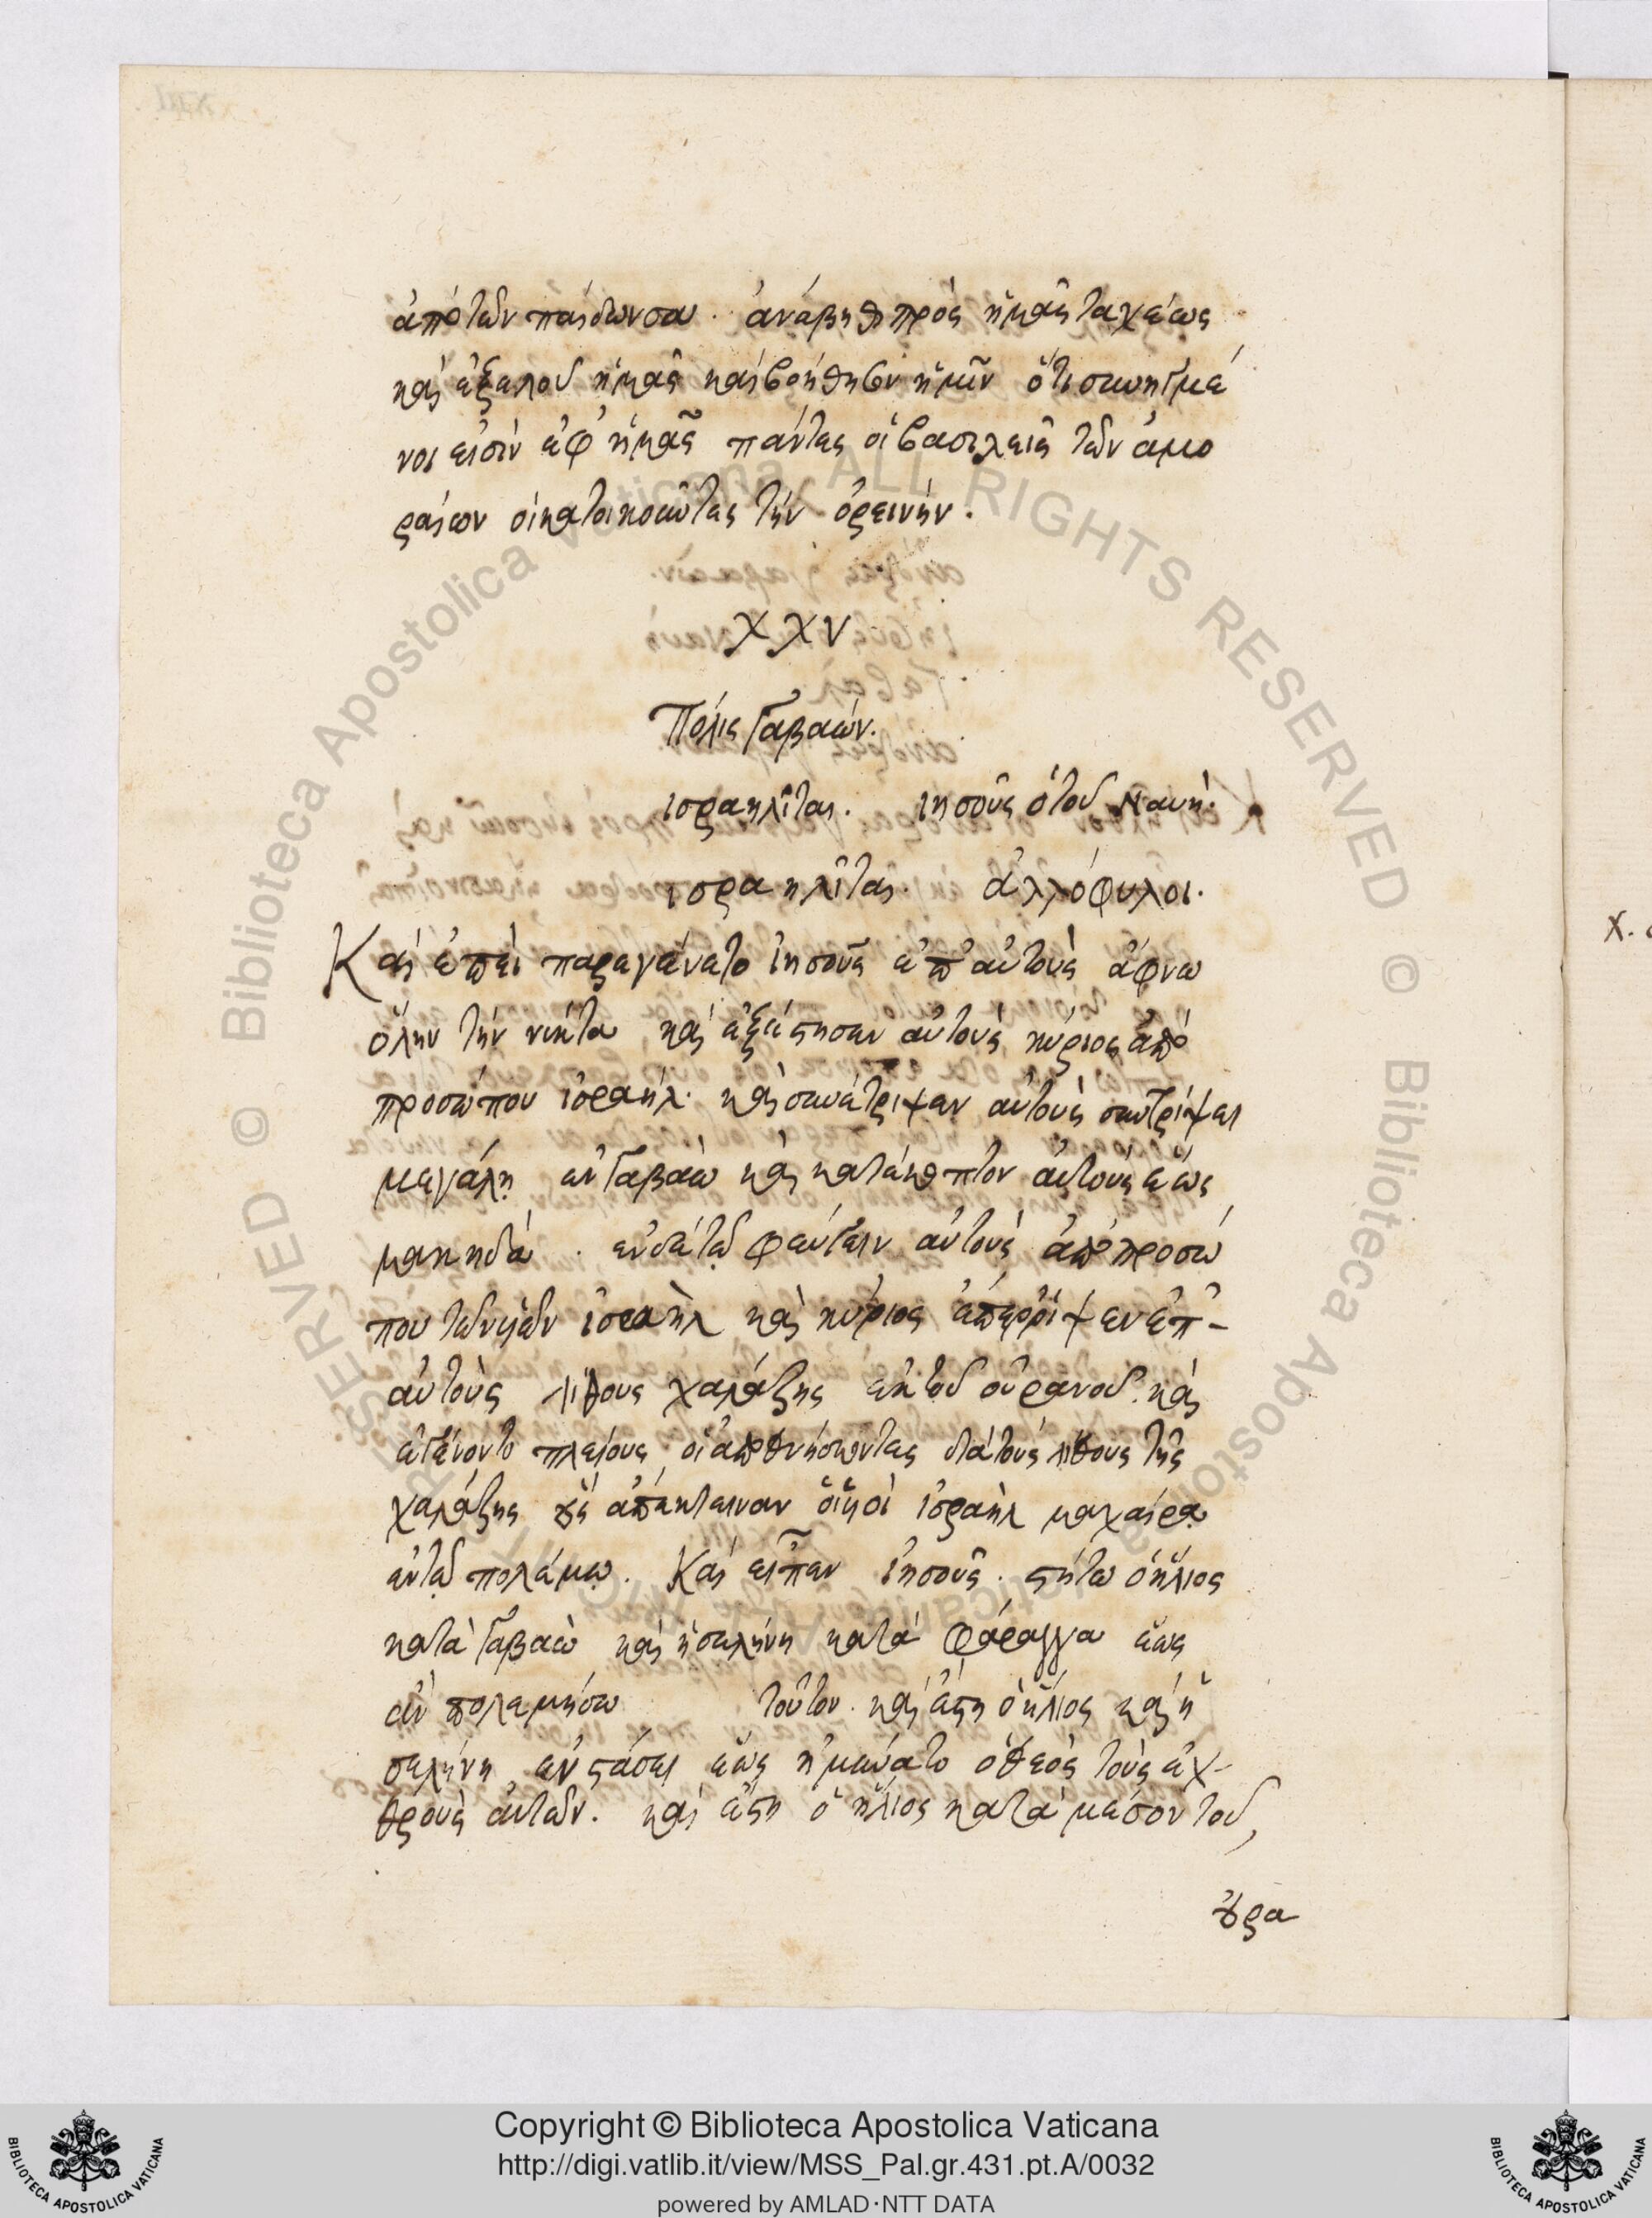 ἀπὸ τῶν παίδων σου. ἀνάβηθι πρὸς ἡμᾶς ταχέως
καὶ ἐξελοῦ ἡμᾶς καὶ βοήθησον ἡμῖν ὅτι συνηγμέ
νοι εἰσὶν ἐφ ἡμᾶς πάντες οἱ βασιλεῖς τῶν ἀμο
ραίων οἱ κατοικοῦντες τὴν ὀρεινήν.
XXV
Πόλις Γαβαών.
ισραηλῖται. ιησοῦς ὁ τοῦ Ναυή.
ισραηλῖται. ἀλλόφυλοι.
Καὶ ἐπεὶ παρεγένετο ἰησοῦς ἐπ αὐτοὺς ἄφνω
ὅλην τὴν νύκτα καὶ ἐξέστησεν αὐτοὺς κύριος ἀπὸ
προσώπου ἰσραήλ. καὶ συνέτριψεν αὐτοὺς συντρίψει
μεγάλη ἐν Γαβαὼ καὶ κατέκοπτον αὐτοὺς ἕως
μακηδά. ἐν δὲ τῷ φεύγειν αὐτοὺς ἀπὸ προσώ
που τῶν υἱῶν ἰσραὴλ καὶ κύριος ἐπέρριψεν ἐπ-
αὐτοὺς λίθους χαλάζης ἐκ τοῦ οὐρανοῦ. καὶ
ἐγένοντο πλείους οἱ ἀποθνήσκοντες διὰ τοὺς λίθους τῆς
χαλάζης οὓς ἀπέκτειναν οἱ υἱοὶ ἰσραὴλ μαχαίρα
ἐν τῷ πολέμῳ. Καὶ εἶπεν ἰησοῦς. στήτω ὁ ἥλιος
κατὰ Γαβαὼ καὶ ἡ σελήνη κατὰ φάραγγα ἕως
ἂν πολεμήσω τοῦτον. καὶ ἔστη ὁ ἥλιος καὶ ἡ
σελήνη ἐν στάσει ἕως ἠμύνατο ὁ θεὸς τοὺς ἐχ-
θροὺς αὐτῶν. καὶ ἔστη ὁ ἥλιος κατὰ μέσον τοῦ
οὐρα
Copyright © Biblioteca Apostolica Vaticana
http://digi.vatlib.it/view/MSS_Pal.gr.431.pt.A/0032
powered by AMLAD·NTT DATA